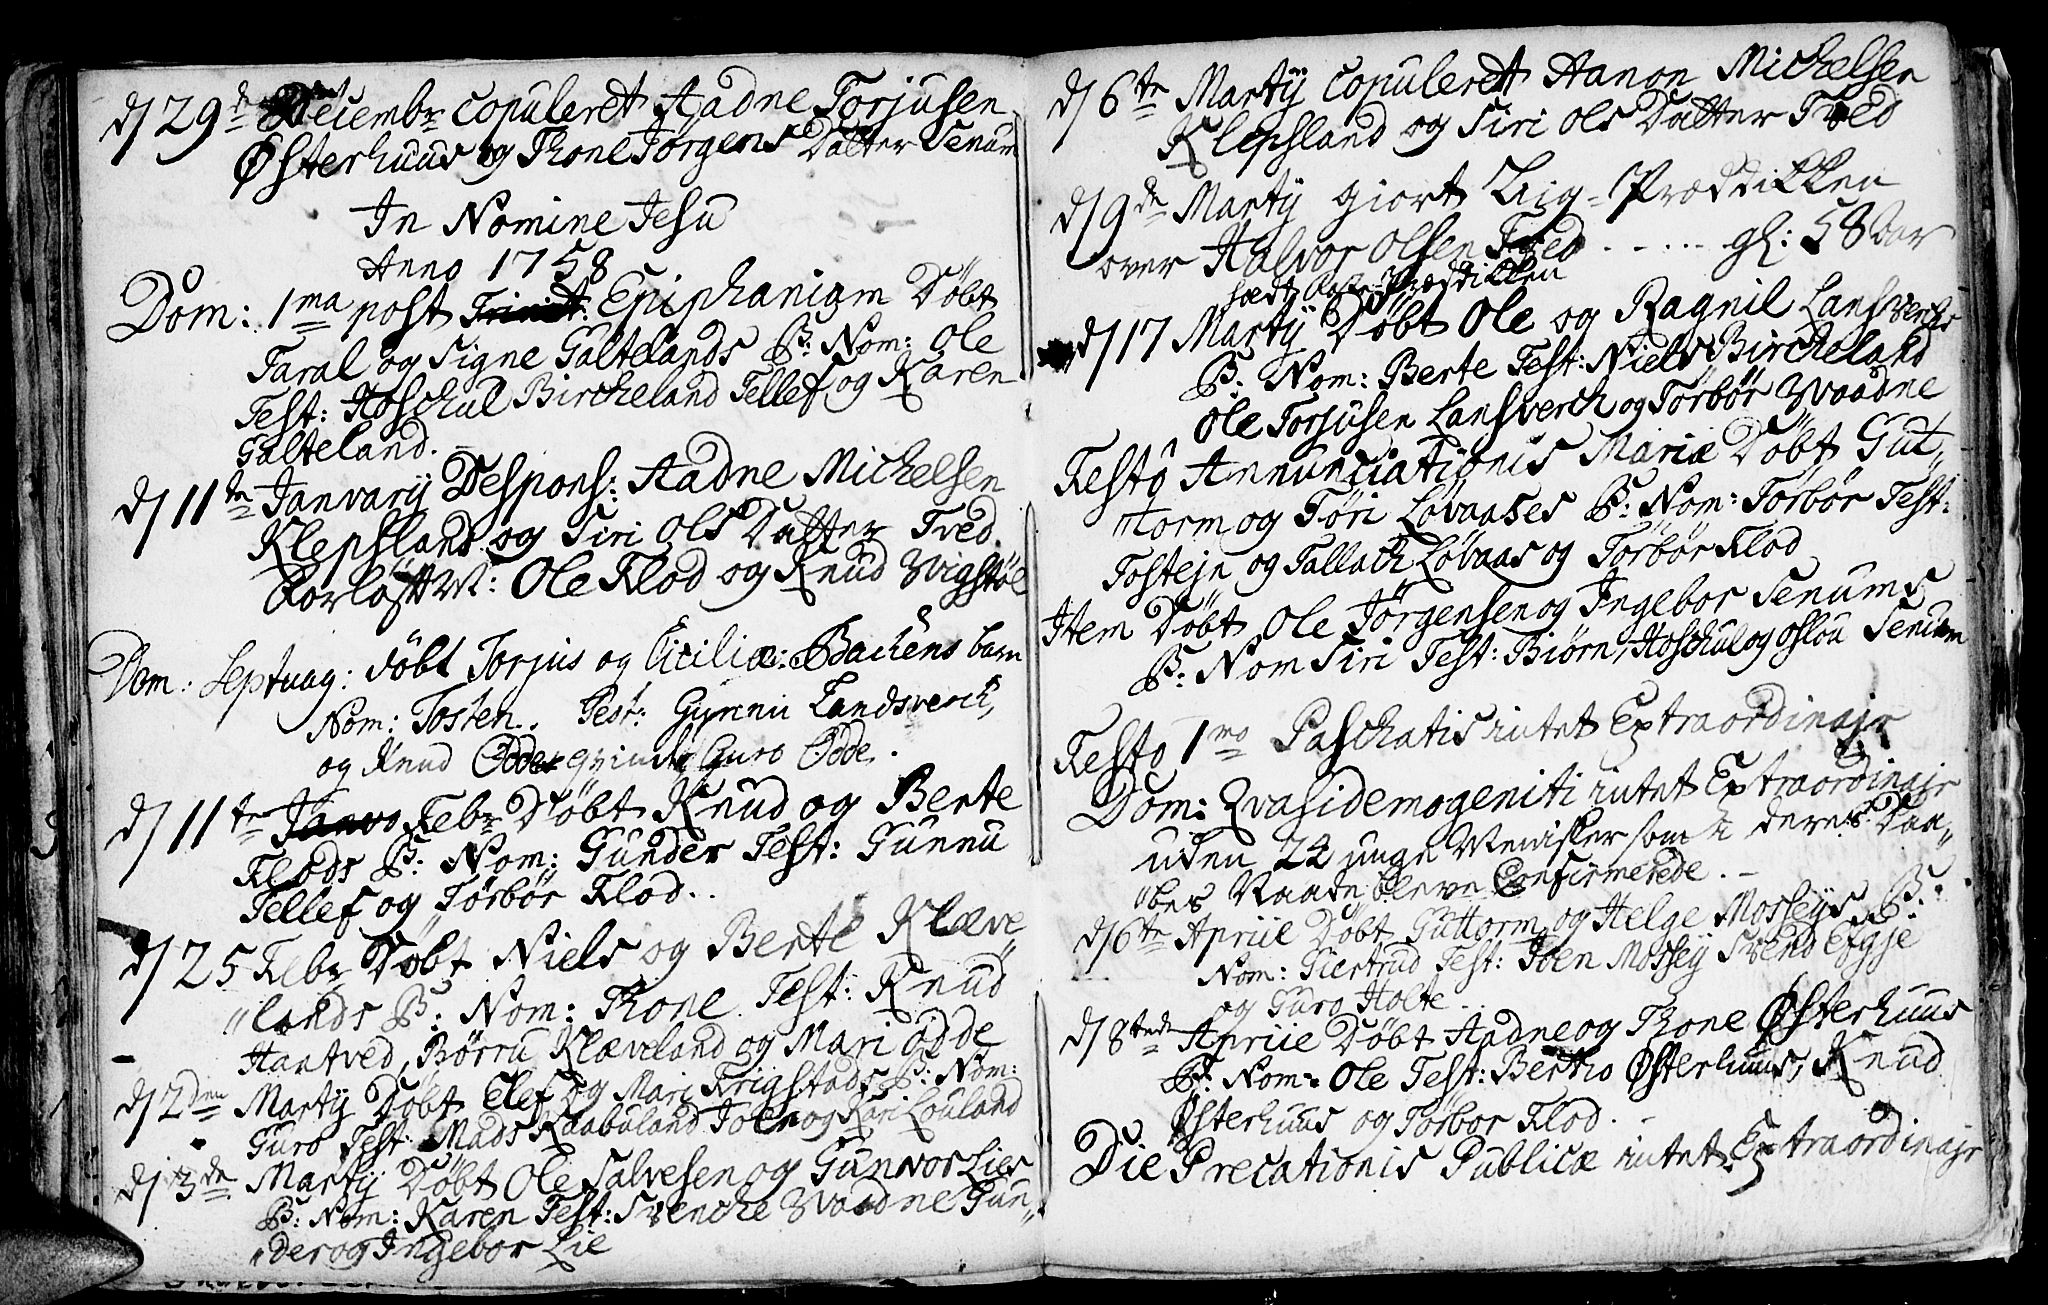 d/ 29de Decembr copuleret Aadne Torjusen
Østerhuus og Thone Jörgens Datter Senum
In Nomine Jesu
Anno 1758
Dom: 1ma post Trinit: Epiphaniam Döbt
Taral og Signe Galtelands B: Nom: Ole
Test: Hoschul Bircheland Tellef og Karen
Galteland.
d/ 11te Janvarij Despons: Aadne Michelsen
Klepsland og Siri Ols Datter Tved.
Corlöft W: Ole Flod og Knud Wigstöl
Dom: Septuag: döbt Torjus og Ciciliæ Bachens barn
Nom: Tosten. Test: Gunnu Landsverch,
og Knud Odde qvinde Guro Odde.
d/ 11te Janvo Febr Döbt Knud og Berte
Flods B: Nom: Gunder Test: Gunnu
Tellef og Törbör Flod.
d/ 25 Febr Döbt Niels og Berte Klæve
"lands B: Nom: Thone Test: Knud
Haatved, Börru Klæveland og Mari Odde
d/ 2den Martij Döbt Elef og Mari Frigstads B: Nom:
Guro Test: Mads Raabuland Joen og Kari Louland
d/ 3de Martij Döbt Ole Salvesen og Gunvor Lies
B: Nom: Karen Test: Svenche Waadne Gun"
"der og Ingebör Lie
d/ 6te Martij Copuleret Aanon Michelsen
Klepsland og Siri Ols Datter Tved
d/ 9de Martij giort Liig-Præddikken
over Halvor Olsen Tved - - - - - gl: 58 Aar
holdt Præddikken
d/ 17 Martij Döbt Ole og Ragnil Lansverchs
B: Nom: Berte Test: Niels Bircheland
Ole Torjusen Lansverch og Törbör Waadne
Festo Annunciationis Mariæ Döbt Gut"
"torm og Töri Lövaases B: Nom: Törbör Test:
Tostejn og Tallach Lövaas og Törbör Flod
Item Döbt Ole Jörgensen og Ingebor Senums
B: Nom Siri Test: Biörn, Hoschul og Oslou Senum
Festo 1mo Paschatis intet Extraordinajr
Dom: Qvasidemogeniti intet Extraordinajr
uden 24 unge Menisker som i deres Daa"
"bes Naade bleve Confirmerede.
d/ 6te Apriil Döbt Guttorm og Helge Mosseys B:
Nom: Giertrud Test: Joen Mossey Svend Efgje
og Guro Holte.
d/ 8tende Apriie Döbt Aadne og Thone Østerhuus
B: Nom: Ole Test: Bertho Østerhuus, Knud
Østerhuus og Törbor Flod.
Die Precationis Publicæ intet Extraordinajr